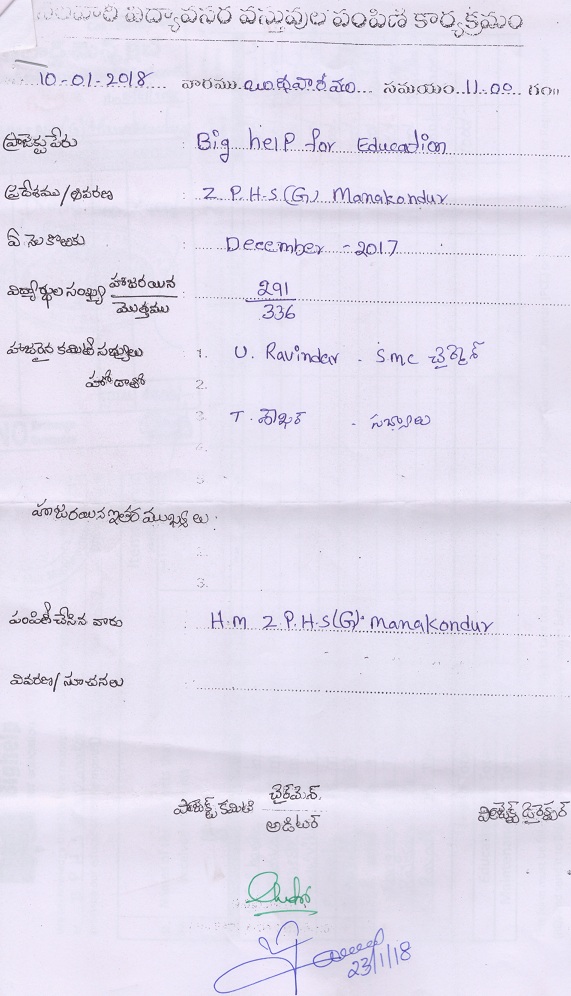 విద్యావసర వస్తువుల పంపిణి కార్యక్రమం
10-01-2018 వారము బుధవారము సమయం 11-00 గం॥
ప్రాజెక్టు పేరు : Big help for Education
ప్రదేశము/వివరణ : Z P.H.S(G) Manakondur
ఏ నెల కొరకు : December - 2017
విద్యార్థుల సంఖ్య హాజరయిన / మొత్తము : 291 / 336
హాజరైన కమిటి సభ్యులు 1. U. Ravinder - SMC చైర్మెన్
హోదాతో 2.
3. T. - సభ్యులు
4.
5
హాజరయిన ఇతర ముఖ్యులు :
3.
పంపిణి చేసిన వారు : H.M Z P.H.S(G). Manakondur
వివరణ/సూచనలు
ప్రాజెక్ట్ కమిటి చైర్‌మెన్ / అడిటర్ ప్రాజెక్ట్ డైరెక్టర్
23/1/18